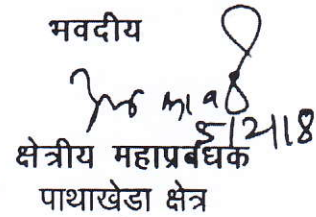 भवदीय
5/2/18
क्षेत्रीय महाप्रबंधक
पाथाखेडा क्षेत्र